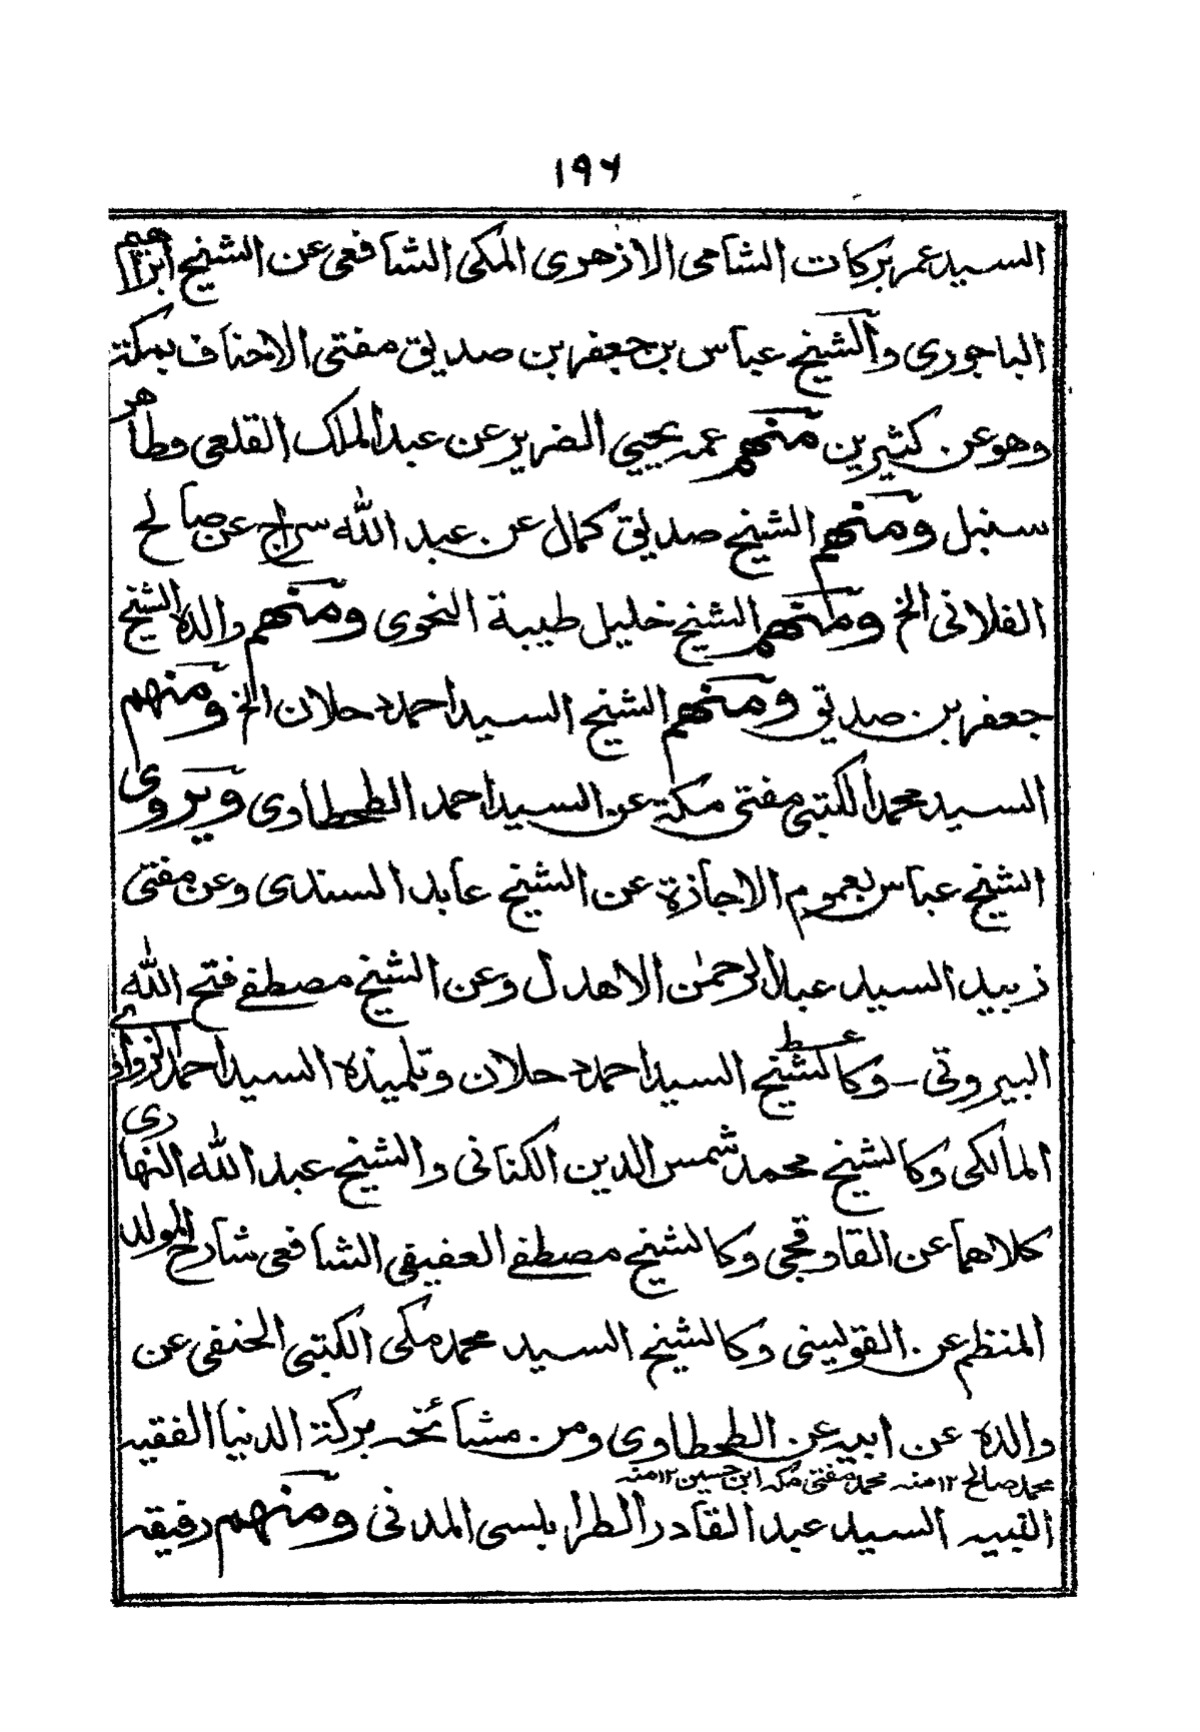 ١٩٦
السيد عمر بركات الشامى الازهرى المكى الشافعى عن الشيخ ابراهيم
الباجورى والشيخ عباس بن جعفر بن صديق مفتى الاحناف بمكة
وهو عن كثيرين منهم عمه يحيى الضرير عن عبد الملك القلعى وطاهر
سنبل ومنهم الشيخ صديق كمال عن عبد الله سراج عن صالح
الفلانى الخ ومنهم الشيخ خليل طيبة النحوى ومنهم والده الشيخ
جعفر بن صديق ومنهم الشيخ السيد احمد دحلان الخ ومنهم
السيد محمد الكتبى مفتى مكة عن السيد احمد الطحطاوى ويروى
الشيخ عباس بعموم الاجازة عن الشيخ عابد السندى وعن مفتى
زبيد السيد عبد الرحمٰن الاهدل وعن الشيخ مصطفے فتح الله
البيروتى - وكالشيخ السيد احمد دحلان وتلميذه السيد احمد الزواوى
المالكى وكالشيخ محمد شمس الدين الكنانى والشيخ عبد الله النهارى
كلاهما عن القاوقجى وكالشيخ مصطفے العفيفى الشافعى شارح المولد
المنظم عن القويسنى وكالشيخ السيد محمد مكى الكتبى الحنفى عن
والده عن ابيه عن الطحطاوى ومن مشائخه بركة الدنيا الفقيه
محمد صالح ١٢ منه محمد مفتى مكه ابن حسين ١٢ منه
النبيه السيد عبد القادر الطرابلسى المدنى ومنهم رفيقه